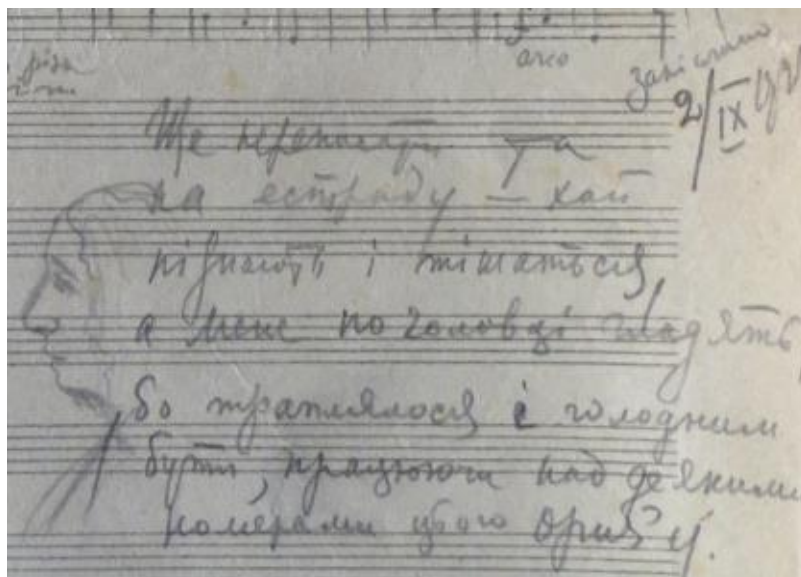 arco
закінчено
2/IX
Ще переписати та
на естраду — хай
пізнають і тішаться,
а мене по головці гладять,
бо траплялося і голодним
бути, працюючи над деякими
номерами цього